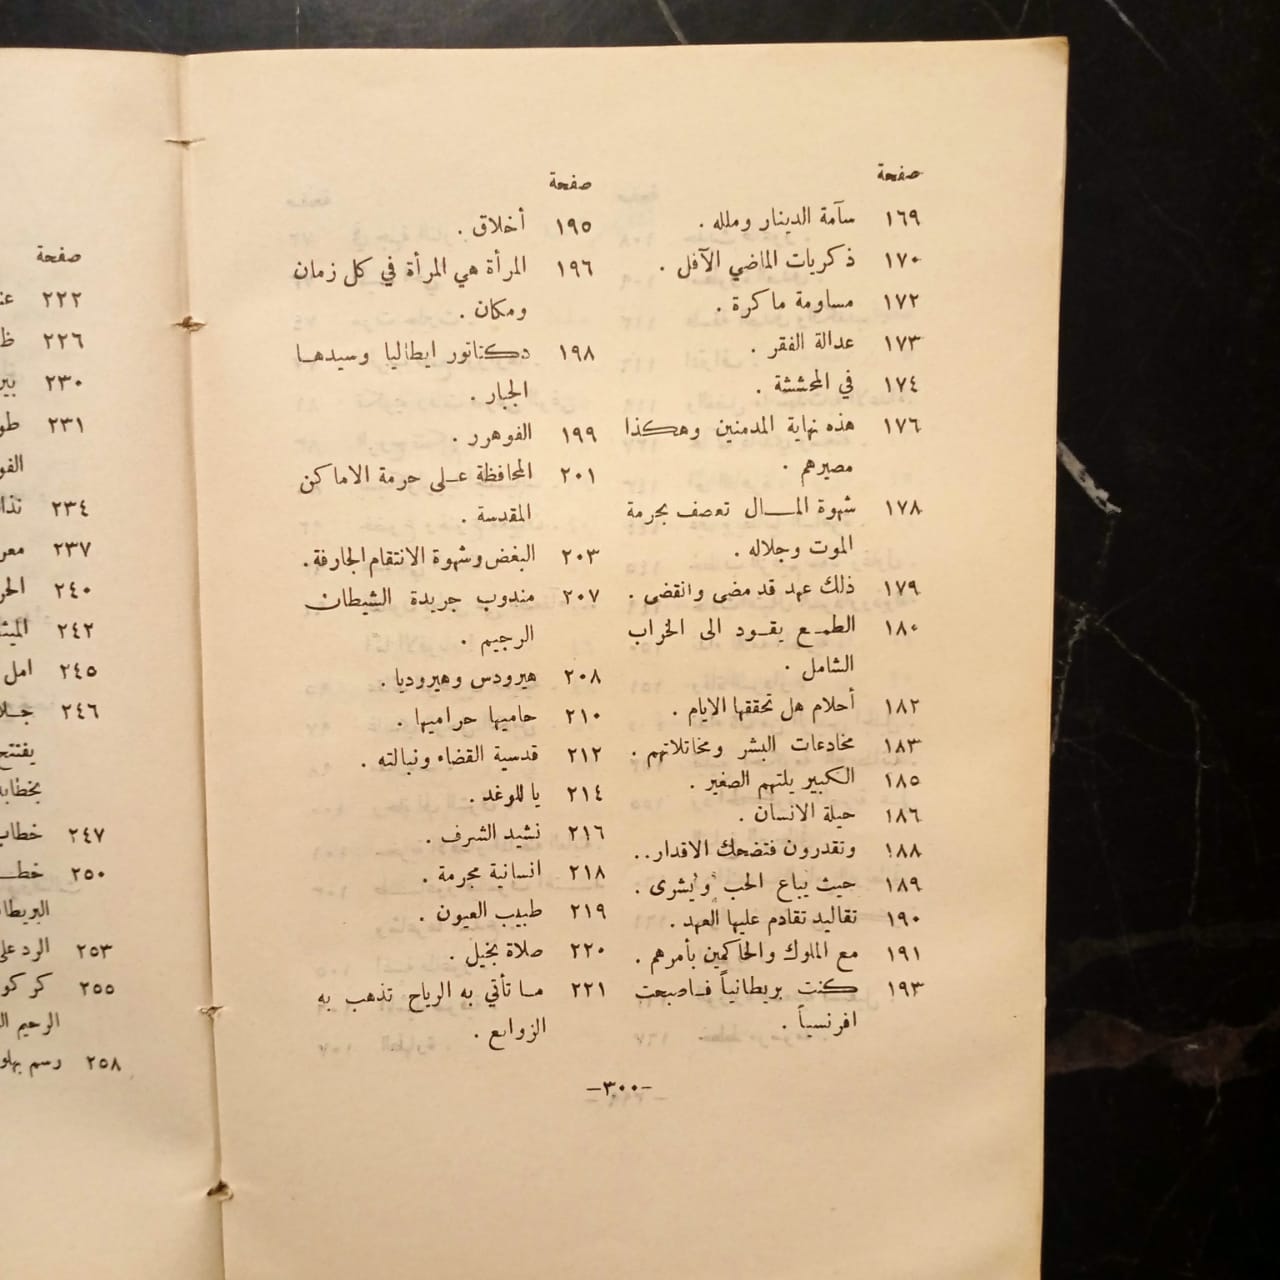 صفحة
١٦٩ سآمة الدينار وملله .
١٧٠ ذكريات الماضي الآفل .
١٧٢ مساومة ماكرة .
١٧٣ عدالة الفقر .
١٧٤ في المحششة .
١٧٦ هذه نهاية المدمنين وهكذا
مصيرهم .
١٧٨ شهوة المـال تعصف بجرمة
الموت وجلاله .
١٧٩ ذلك عهد قد مضى وانقضى .
١٨٠ الطمـع يقـود الى الخراب
الشامل .
١٨٢ أحلام هل تحققها الايام .
١٨٣ مخادعات البشر ومخاتلاتهم .
١٨٥ الكبير يلتهم الصغير .
١٨٦ حيلة الانسان .
١٨٨ وتقدرون فتضحك الاقدار..
١٨٩ حيث يباع الحب ويشرى .
١٩٠ تقاليد تقادم عليها العهد .
١٩١ مع الملوك والحاكمين بأمرهم .
١٩٣ كنت بريطانياً فـاصبحت
افرنسياً .
صفحة
١٩٥ أخلاق .
١٩٦ المرأة هي المرأة في كل زمان
ومكان .
١٩٨ دكتاتور ايطاليا وسيدهـا
الجبار .
١٩٩ الفوهرر .
٢٠١ المحافظة عـلى حرمة الاماكن
المقدسة .
٢٠٣ البغض وشهوة الانتقام الجارفة .
٢٠٧ مندوب جريدة الشيطان
الرجيم .
٢٠٨ هيرودس وهيروديا .
٢١٠ حاميها حراميها .
٢١٢ قدسية القضاء ونبالته .
٢١٤ يا للوغد .
٢١٦ نشيد الشرف .
٢١٨ انسانية مجرمة .
٢١٩ طبيب العيون .
٢٢٠ صلاة بخيل .
٢٢١ مـا تأتي به الرياح تذهب به
الزوابع .
–٣٠٠–
صفحة
٢٢٢
٢٢٦
٢٣٠
٢٣١
٢٣٤
٢٣٧
٢٤٠
٢٤٢
٢٤٥ امل
٢٤٦
يفتتح
٢٤٧ خطاب
٢٥٠
٢٥٣ الرد
٢٥٥
الرحيم
٢٥٨ رسم